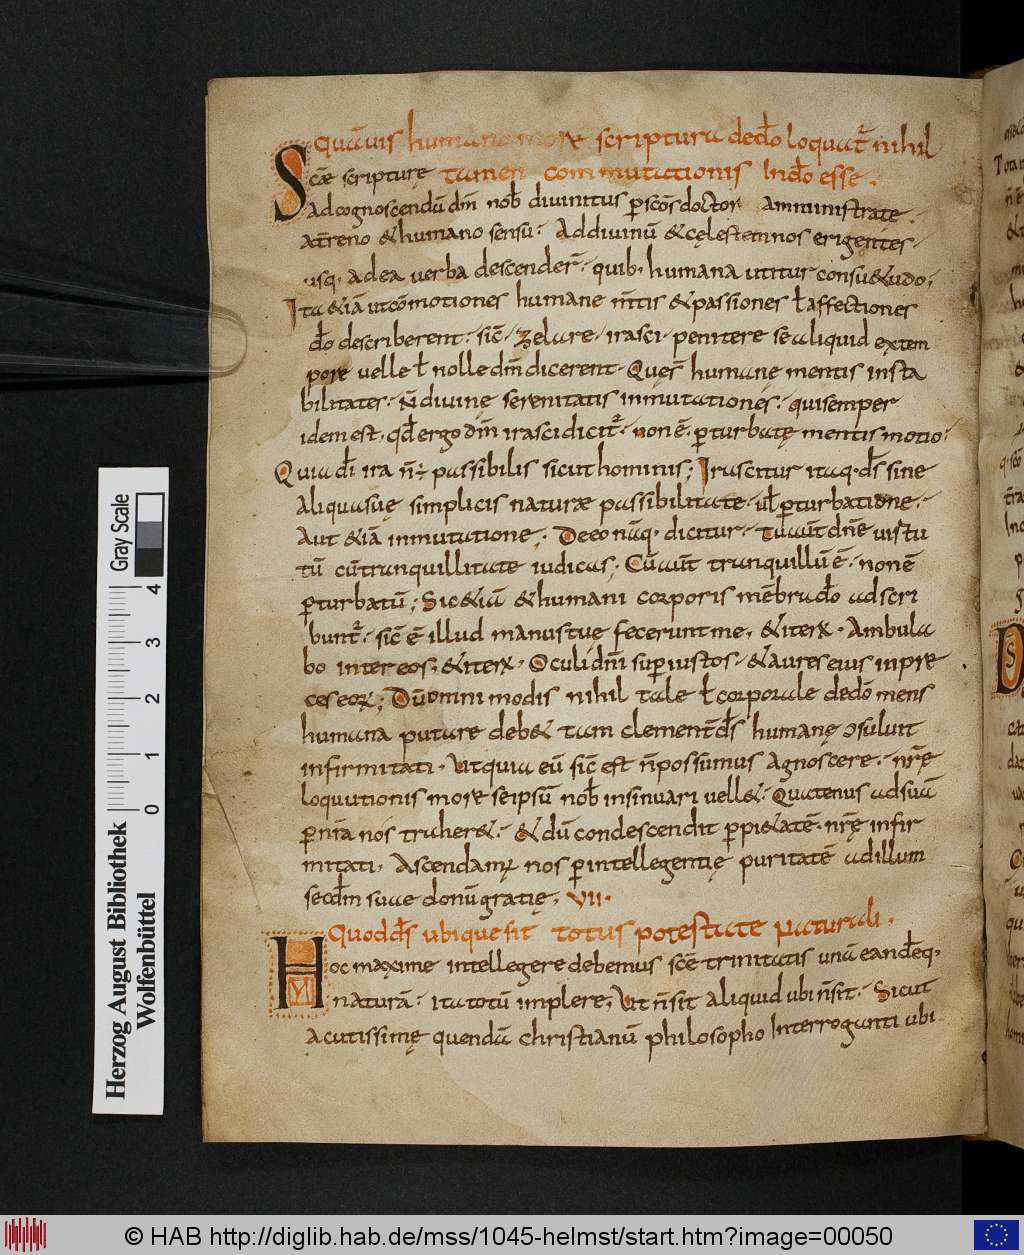 Quāuis humano more scriptura dedō loquat̄ nihil
Scæ scripturę tamen commutationis Indō esse.
Ad cognoscendū dm̄ nob̄ diuinitus p̄ scōs doctor amministrate.
at̄reno & humano sensū. Ad diuinū & cęlestem nos erigentes.
usq, ad ea uerba descender̄. quib, humana utitur consu&udo;
Ita &iā ut cōmotiones humane m̄tis & passiones ł affectiones
dō describerent. sic̄. zelare. irasci. penitere se aliquid ex tem
pore uelle ł nolle dm̄ dicerent. Quęs̄ humanę mentis insta
bilitates. N̄ diuinę serenitatis inmutationes. qui semper
idem est. qd̄ ergo dm̄ irasci dicit̄. non ē. p̄turbatę mentis motio.
Quia dī ira n̄ ÷ passibilis sicut hominis; Irascitur itaq. ds̄ sine
aliqua suę simplicis naturæ passibilitate. ul̄ p̄turbatione.
Aut &iā inmutatione. De eo nāq. dicitur. Tu aūt dn̄e uistu
tū cū tranquillitate iudicas; Cū aūt tranquillū ē. non ē
p̄turbatū; Sic &iā & humani corporis mēbra dō adscri
bunt̄. sic̄ ē illud manus tuę fecerunt me. & iter̄. Ambula
bo inter eos. & iter̄. Oculi dn̄i sup̄ iustos. & aures eius in pre
ces eor̄; Dū omni modis nihil tale ł corporale de dō mens
humana putare deb& tam clement̄ ds̄ humanę ɔsuluit
infirmitati. Ut quia eū sic̄ est n̄ possumus agnoscere. nr̄ę
loquutionis more se ipsū nob̄ insinuari uell&. Quatenus ad suā
p̄ nīa nos traher&. & dū condescendit p̄ pi&atē. nr̄ę infir
mitati. Ascendam̄ nos p̄ intellegentię puritatē ad illum
secdm̄ suae donū gratię. VII.
Quod ds̄ ubique sit totus potestate naturali.
Hoc maxime intellegere debemus scē trinitatis unā eandēq,
VII naturā. ita totū implere. Ut n̄ sit aliquid ubi n̄ sit. Sicut
acutissimę quendā christianū philosopho Interroganti ubi
Gray Scale
4
3
2
1
0
Herzog August Bibliothek
Wolfenbüttel
© HAB http://diglib.hab.de/mss/1045-helmst/start.htm?image=00050